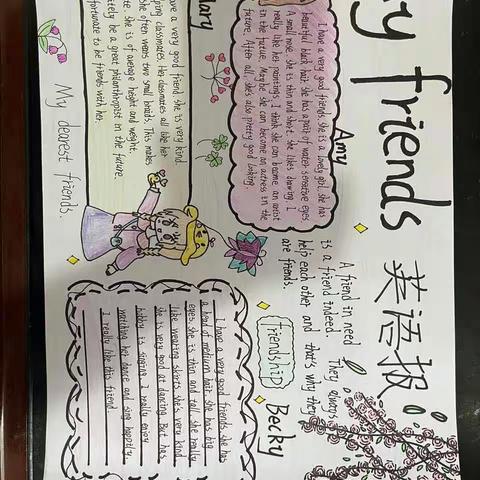 y friends 英语报
Amy
I have a very good friends. she is a lovely girl. she has
beautiful black hair. she has a pair of water sensitive eyes
A small nose. she is thin and short. she likes drawing. I
really like her paintings. I think she can become an artist
in the future. Maybe she can become an actress in the
future. After all, she's also pretty good looking.
A friend in need
is a friend indeed. They always
help each other and that's why they
are friends.
Mary
have a very good friend she is very kind
ping classmates. Her classmates all like her
She often wears two small braids. This makes
te. she is of average height and weight.
itely be a great philanthropist in the future.
fortunate to be friends with her.
My dearest friends.
friendship
Becky
I have a very good friends. she has
a head of medium hair. she has big
eyes. she is thin and tall. she really
like wearing skirts. she's very kind
she is very good at dancing. But has
hobby is singing. I really enjoy
watching her dance and sing happily.
I really like this friend.